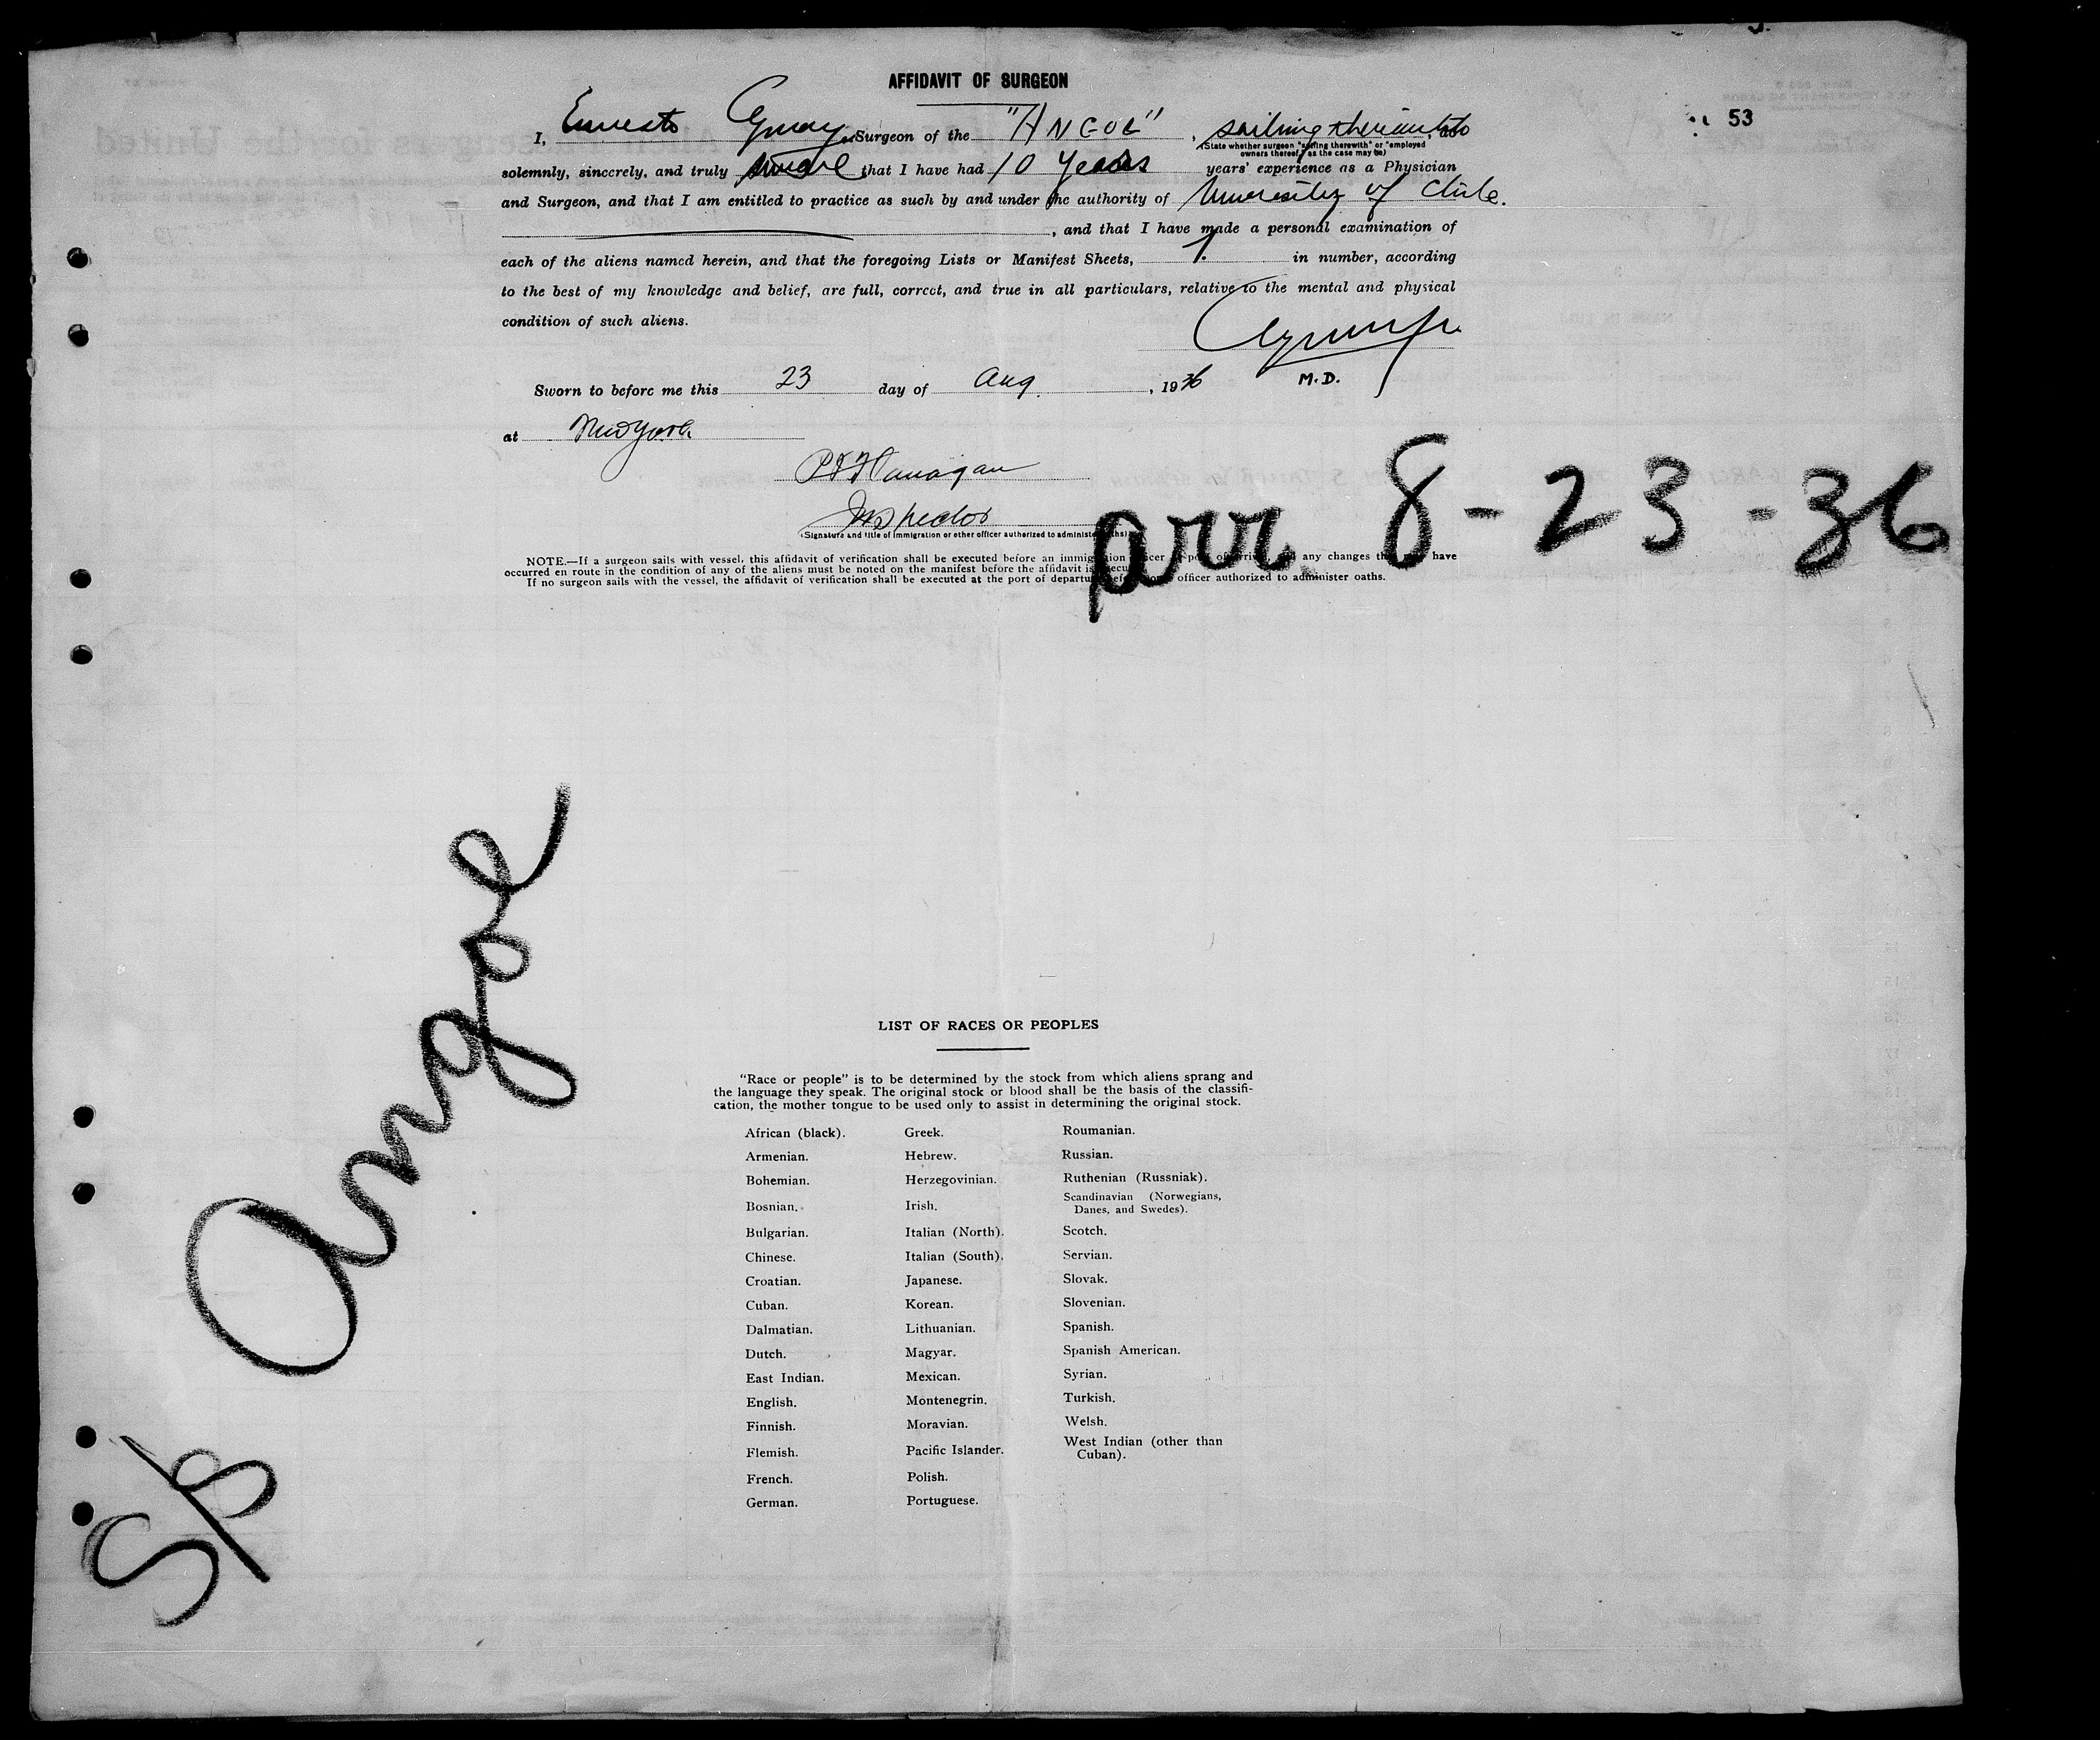 AFFIDAVIT OF SURGEON
53
I, Ernesto Surgeon of the "ANGOL", sailing therewith, do
(State whether surgeon "sailing therewith" or "employed
owners thereof," as the case may be)
solemnly, sincerely, and truly swear that I have had 10 years years' experience as a Physician
and Surgeon, and that I am entitled to practice as such by and under the authority of University of Chile.
, and that I have made a personal examination of
each of the aliens named herein, and that the foregoing Lists or Manifest Sheets, 1. in number, according
to the best of my knowledge and belief, are full, correct, and true in all particulars, relative to the mental and physical
condition of such aliens.
M.D.
Sworn to before me this 23 day of Aug., 1936
at New York
P F Flanagan
Inspector
(Signature and title of immigration or other officer authorized to administer oaths)
arr. 8-23-36
NOTE.—If a surgeon sails with vessel, this affidavit of verification shall be executed before an immigration officer at port of arrival and any changes that may have
occurred en route in the condition of any of the aliens must be noted on the manifest before the affidavit is executed.
If no surgeon sails with the vessel, the affidavit of verification shall be executed at the port of departure before officer authorized to administer oaths.
S/S Angol
LIST OF RACES OR PEOPLES
"Race or people" is to be determined by the stock from which aliens sprang and
the language they speak. The original stock or blood shall be the basis of the classifi-
cation, the mother tongue to be used only to assist in determining the original stock.
African (black).
Armenian.
Bohemian.
Bosnian.
Bulgarian.
Chinese.
Croatian.
Cuban.
Dalmatian.
Dutch.
East Indian.
English.
Finnish.
Flemish.
French.
German.
Greek.
Hebrew.
Herzegovinian.
Irish.
Italian (North).
Italian (South).
Japanese.
Korean.
Lithuanian.
Magyar.
Mexican.
Montenegrin.
Moravian.
Pacific Islander.
Polish.
Portuguese.
Roumanian.
Russian.
Ruthenian (Russniak).
Scandinavian (Norwegians,
Danes, and Swedes).
Scotch.
Servian.
Slovak.
Slovenian.
Spanish.
Spanish American.
Syrian.
Turkish.
Welsh.
West Indian (other than
Cuban).